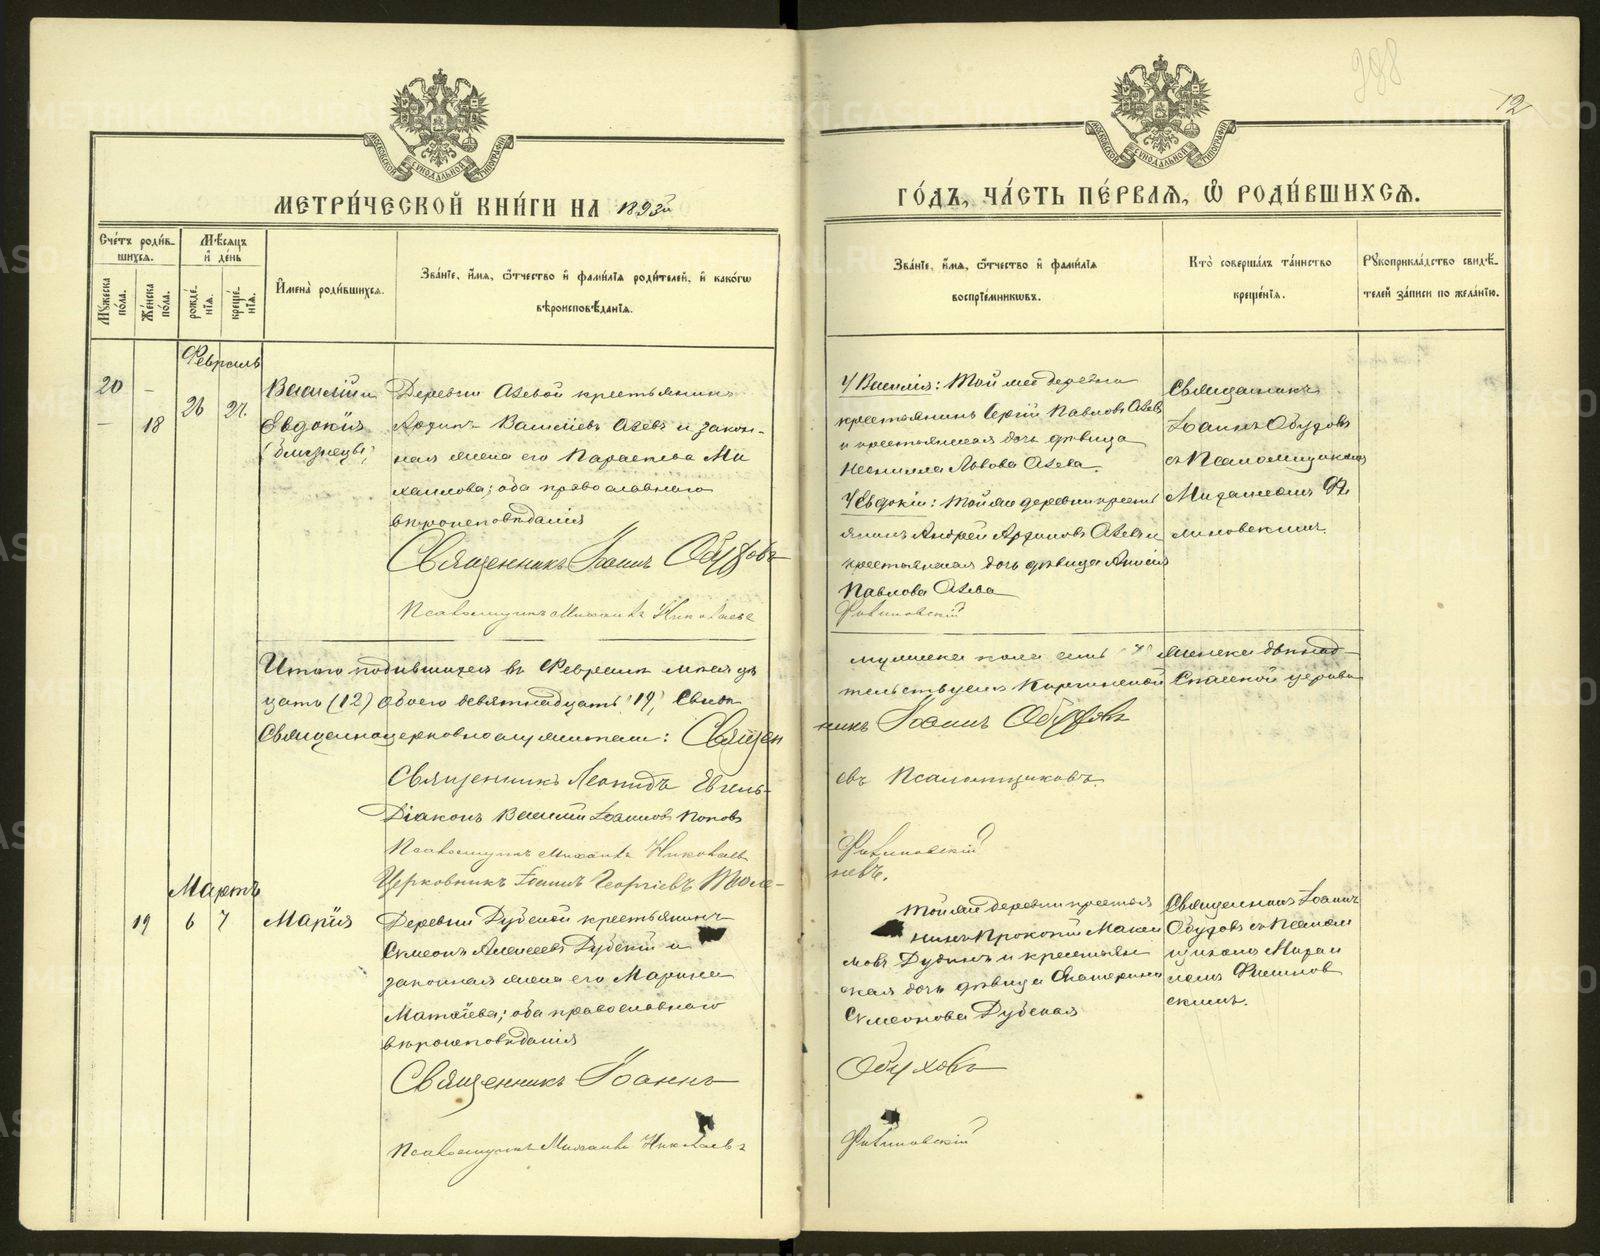 12
МЕТРИ́ЧЕСКОЙ КНИ́ГИ НА 1893й
ГО́ДЪ, ЧА́СТЬ ПЕ́РВАЯ, Ѡ РОДИ́ВШИХСЯ.
МОСКОВСКОЙ СУНОДАЛЬНОЙ ТИПОГРАФІИ
МОСКОВСКОЙ СУНОДАЛЬНОЙ ТИПОГРАФІИ
Сче́тъ роди́вшихся.
Мѣ́сяцъ и҆ де́нь
Мꙋ́жеска по́ла.
Же́нска по́ла.
рожде́нїѧ.
креще́нїѧ.
И҆мена̀ роди́вшихсѧ.
Зва́нїе, и҆́мѧ, ѻ҆́тчество и҆ фами́лїѧ роди́телей, и҆ како́гѡ
вѣроисповѣ́данїѧ.
Зва́нїе, и҆́мѧ, ѻ҆́тчество и҆ фами́лїѧ
воспрїе́мникѡвъ.
Кто̀ соверша́лъ та́инство
креще́нїѧ.
Рꙋкоприкла́дство свидѣ́-
телей за́писи по жела́нїю.
Февраль
20 – 26 27. Василій и
– 18 Евдокія
(близнецы)
Деревни Азевой крестьянинъ
Васильевъ Азевъ и закон-
ная жена его Параскева Ми
хаилова; оба православнаго
вѣроисповѣданія
Священникъ Іоаннъ Обуховъ
Псаломщикъ Михаилъ Николаевъ
У Василія: Той же деревни
крестьянинъ Сергій Павловъ Азевъ
и крестьянская дочь дѣвица
Неонилла Львова Азева.
У Евдокіи: той же деревни кресть
янинъ Андрей Азевъ и
крестьянская дочь дѣвица Анисія
Павлова Азева
Филиповскій
Священникъ
Іоаннъ Обуховъ
съ Псаломщикомъ
Михаиломъ Фи
липовскимъ.
Итого родившихся въ Февралѣ мѣсяцѣ
мужеска пола семь "7" женска двѣнад-
цать (12) обоего девятнадцать "19," Свидѣ
тельствуемъ Спасской церкви
Священноцерковнослужители: Священ
никъ Іоаннъ Обуховъ
Священникъ Леонидъ
евъ Псаломщиковъ.
Діаконъ Василій Іоанновъ Поповъ
Псаломщикъ Михаилъ Николаевъ
Филиповскій
Церковникъ Іоаннъ Георгіевъ
невъ.
Мартъ
19 6 7 Марія
Деревни Дубской крестьянинъ
Симеонъ Алексеевъ Дубскій и
законная жена его Марина
Матѳіева; оба православнаго
вѣроисповѣданія
Священникъ Іоаннъ
Псаломщикъ Михаилъ Николаевъ
Той же деревни крестья
нинъ Прокопій Макси
мовъ Дубскій и крестьян
ская дочь дѣвица Екатерина
Симеонова Дубская
Обуховъ
Филиповскій
Священникъ Іоаннъ
Обуховъ съ Псалом
щикомъ Михаи
ломъ Филипов
скимъ.
METRIKI.GASO-URAL.RU